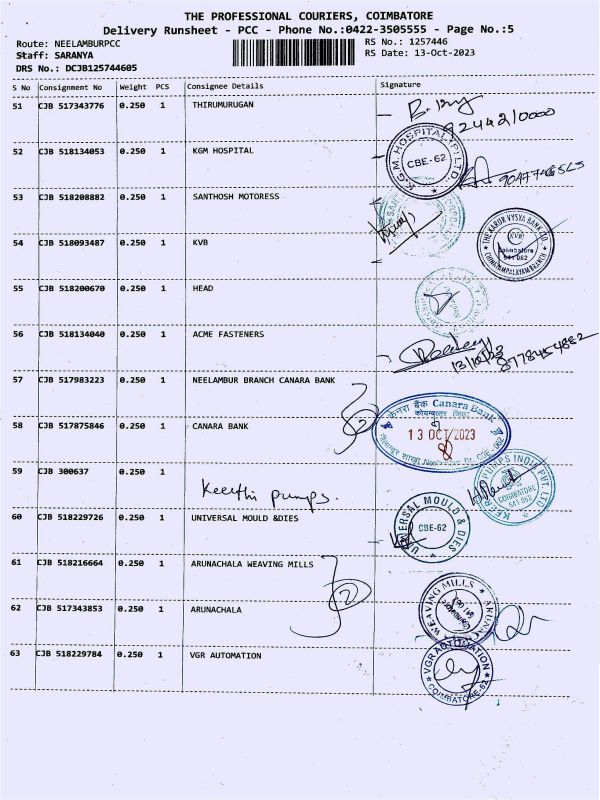 THE PROFESSIONAL COURIERS, COIMBATORE
Delivery Runsheet - PCC - Phone No.:0422-3505555 - Page No.:5
Route: NEELAMBURPCC RS No.: 1257446
Staff: SARANYA RS Date: 13-Oct-2023
DRS No.: DCJB125744605
S No Consignment No Weight PCS Consignee Details Signature
51 CJB 517343776 0.250 1 THIRUMURUGAN
52 CJB 518134053 0.250 1 KGM HOSPITAL
K.G.M. HOSPITAL (P) LTD.
CBE-62
53 CJB 518208882 0.250 1 SANTHOSH MOTORESS
54 CJB 518093487 0.250 1 KVB
THE KARUR VYSYA BANK
KVB
Coimbatore
641 062
55 CJB 518200670 0.250 1 HEAD
56 CJB 518134040 0.250 1 ACME FASTENERS
13/10/23
57 CJB 517983223 0.250 1 NEELAMBUR BRANCH CANARA BANK
58 CJB 517875846 0.250 1 CANARA BANK
2
केनरा बैंक Canara Bank
13 OCT 2023
59 CJB 300637 0.250 1
Keerthi pumps.
PUMPS INDIA PVT LTD
COIMBATORE
641 062
60 CJB 518229726 0.250 1 UNIVERSAL MOULD &DIES
UNIVERSAL MOULD & DIES
CBE-62
61 CJB 518216664 0.250 1 ARUNACHALA WEAVING MILLS
62 CJB 517343853 0.250 1 ARUNACHALA
2
WEAVING MILLS
63 CJB 518229784 0.250 1 VGR AUTOMATION
VGR AUTOMATION
COIMBATORE-62